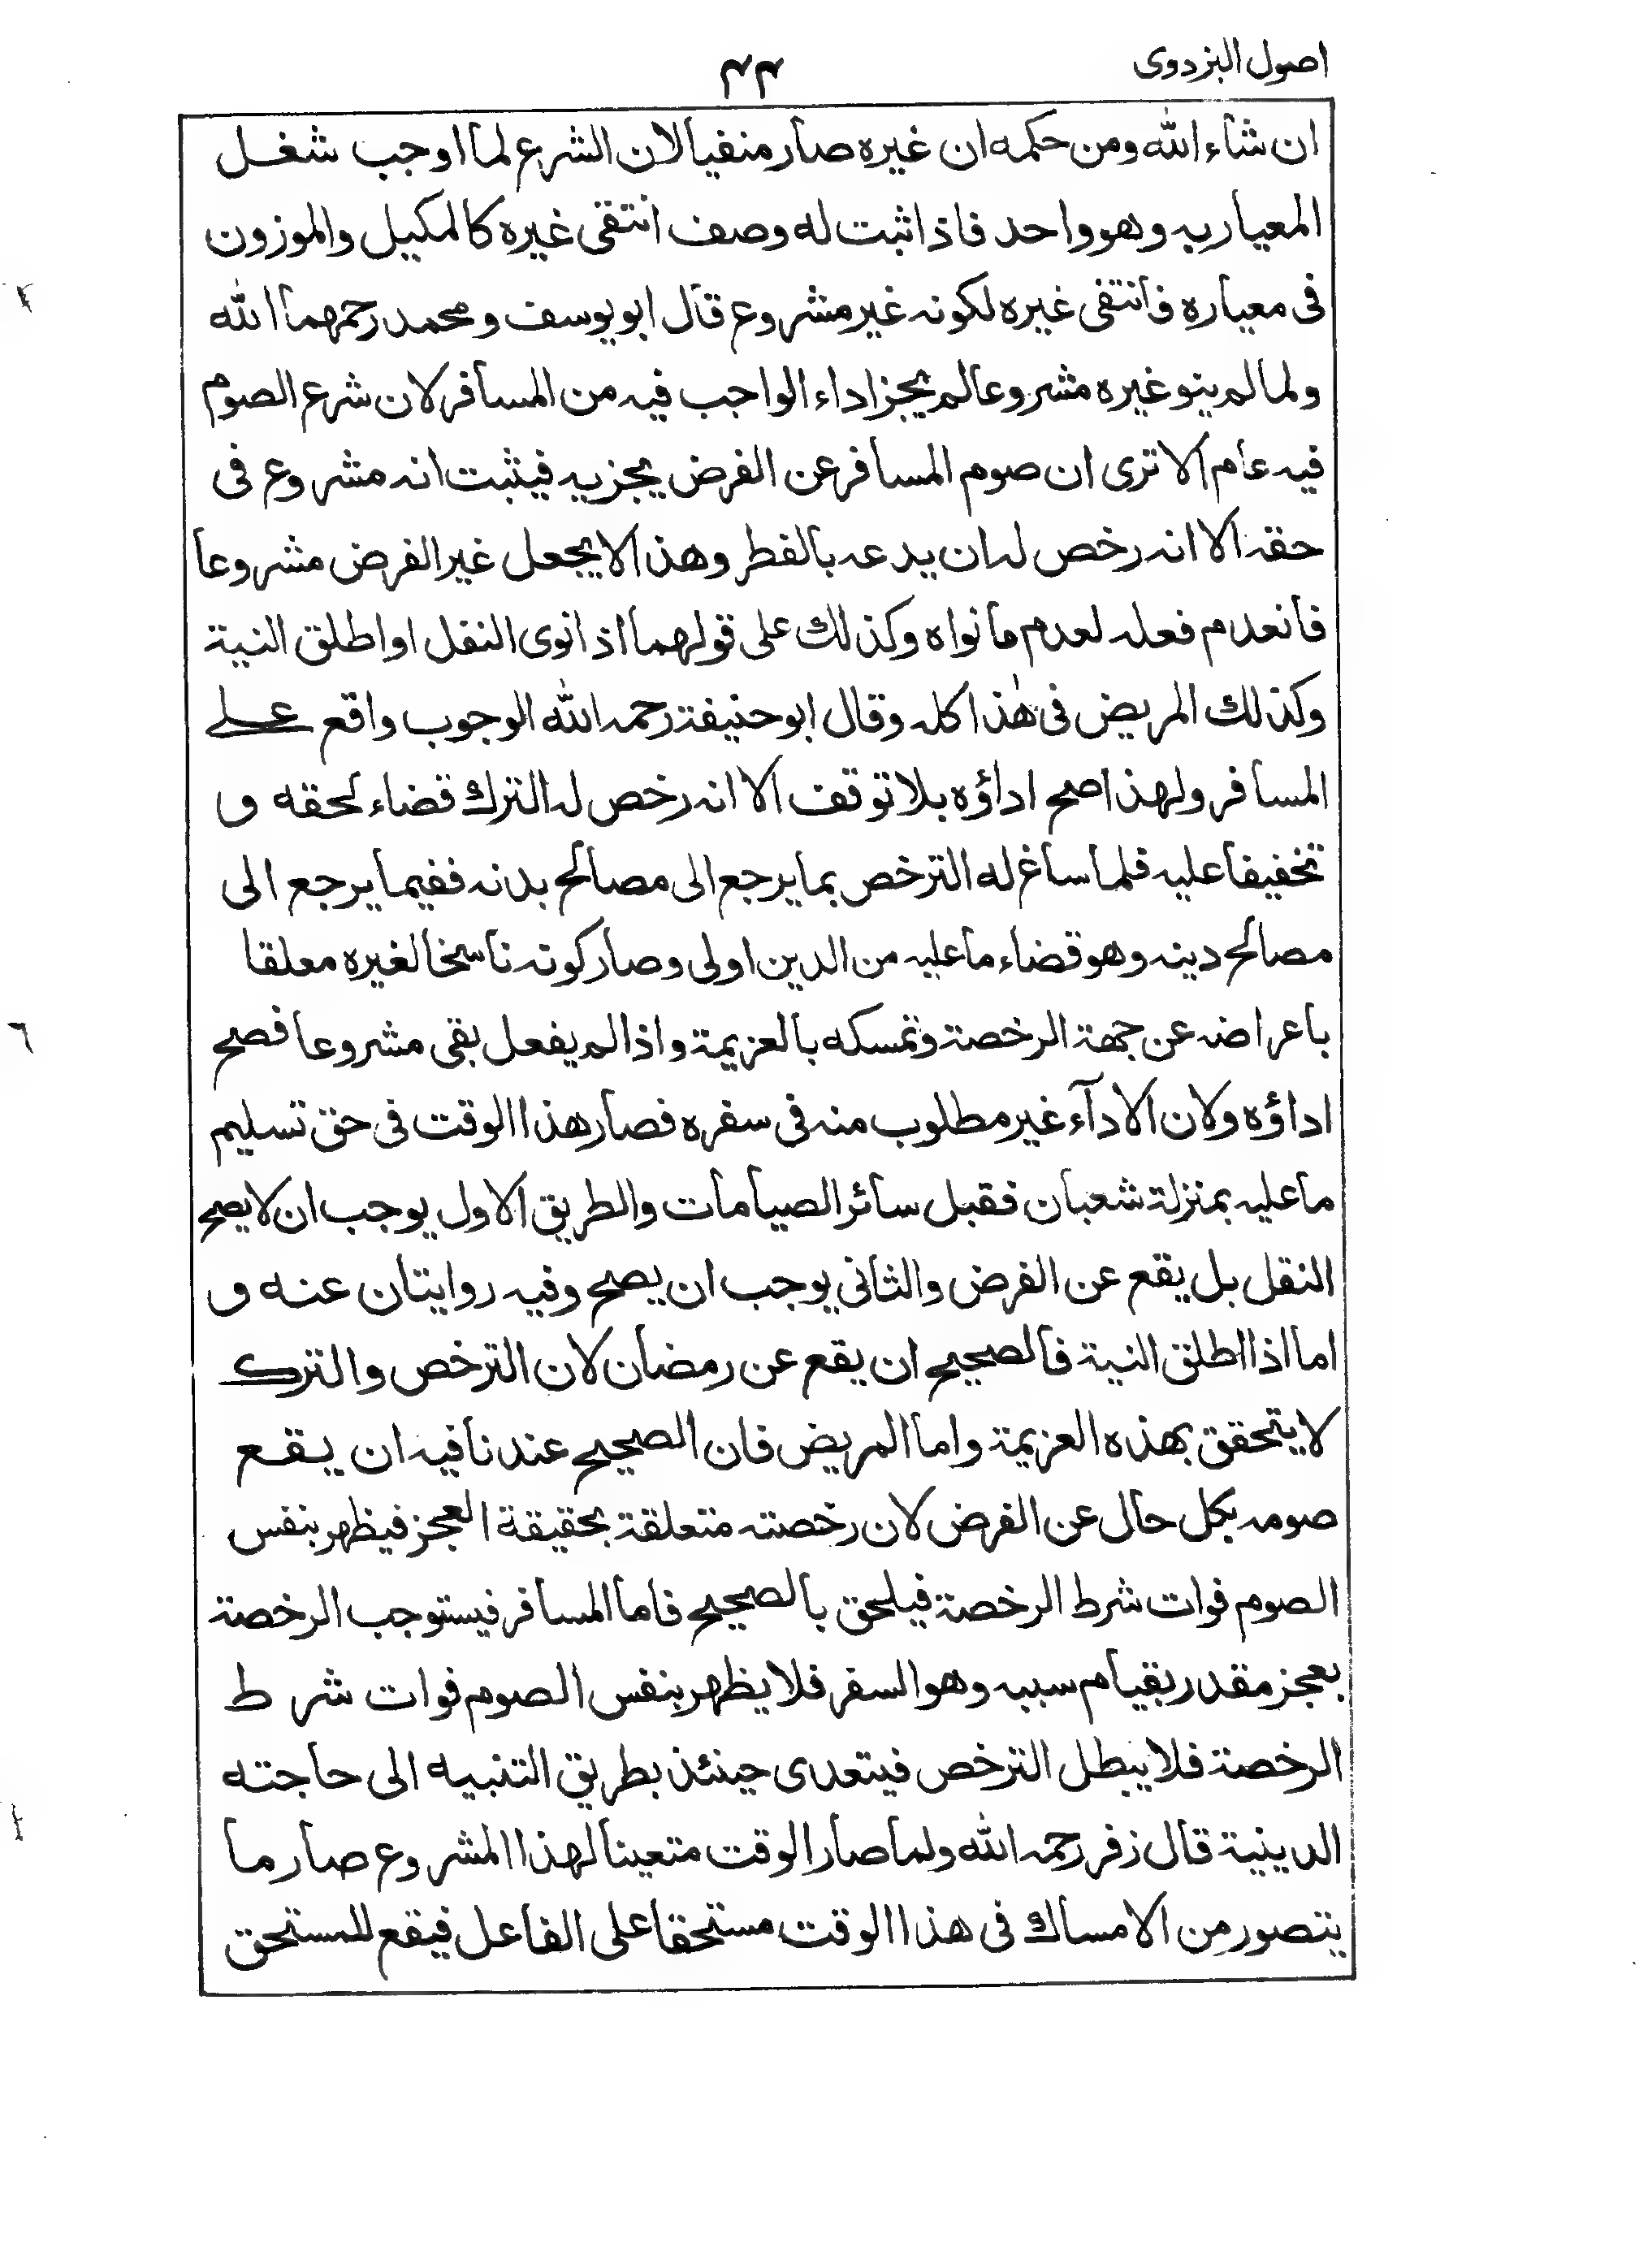 اصول البزدوى
۴۴
ان شاء الله ومن حكمه ان غيره صار منفيا لان الشرع لما اوجب شغل
المعيار به وهو واحد فاذا ثبت له وصف انتقى غيره كالمكيل والموزون
فى معياره فانتفى غيره لكونه غير مشروع قال ابو يوسف و محمد رحمهما الله
ولما لم ينو غيره مشروعا لم يجز اداء الواجب فيه من المسافر لان شرع الصوم
فيه عام الا ترى ان صوم المسافر عن الفرض يجزيه فيثبت انه مشروع فى
حقه الا انه رخص له ان يدعه بالفطر وهذا لا يجعل غير الفرض مشروعا
فانعدم فعله لعدم ما نواه وكذلك على قولهما اذا نوى النفل او اطلق النية
وكذلك المريض فى هٰذا كله وقال ابو حنيفة رحمه الله الوجوب واقع علے
المسافر ولهذا صح اداؤه بلا توقف الا انه رخص له الترك قضاء لحقه و
تخفيفا عليه فلما ساغ له الترخص بما يرجع الى مصالح بدنه ففيما يرجع الى
مصالح دينه وهو قضاء ما عليه من الدين اولى وصار كونه ناسخا لغيره معلقا
باعراضه عن جهة الرخصة وتمسكه بالعزيمة واذا لم يفعل بقى مشروعا فصح
اداؤه ولان الادآء غير مطلوب منه فى سفره فصار هذا الوقت فى حق تسليم
ما عليه بمنزلة شعبان فقبل سائر الصيامات والطريق الاول يوجب ان لا يصح
النفل بل يقع عن الفرض والثانى يوجب ان يصح وفيه روايتان عنه و
اما اذا اطلق النية فالصحيح ان يقع عن رمضان لان الترخص والترك
لا يتحقق بهذه العزيمة واما المريض فان الصحيح عندنا فيه ان يقع
صومه بكل حال عن الفرض لان رخصته متعلقة بحقيقة العجز فيظهر بنفس
الصوم فوات شرط الرخصة فيلحق بالصحيح فاما المسافر فيستوجب الرخصة
بعجز مقدر بقيام سببه وهو السفر فلا يظهر بنفس الصوم فوات شرط
الرخصة فلا يبطل الترخص فيتعدى حينئذ بطريق التنبيه الى حاجته
الدينية قال زفر رحمه الله ولما صار الوقت متعينا لهذا المشروع صار ما
يتصور من الامساك فى هذا الوقت مستحقا على الفاعل فيقع للمستحق